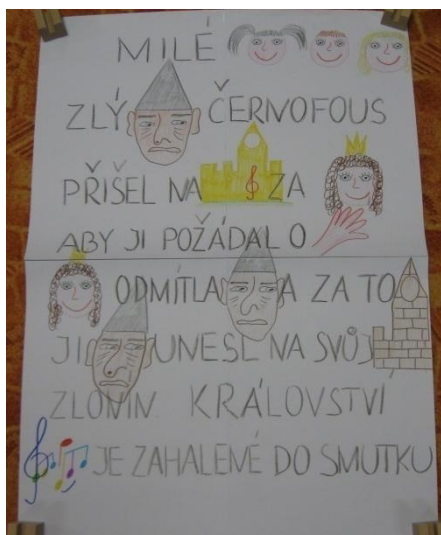 MILÉ
ZLÝ ČERNOFOUS
PŘIŠEL NA ZA
ABY JI POŽÁDAL O
ODMÍTLA A ZA TO
JI UNESL NA SVŮJ
KRÁLOVSTVÍ
JE ZAHALENÉ DO SMUTKU